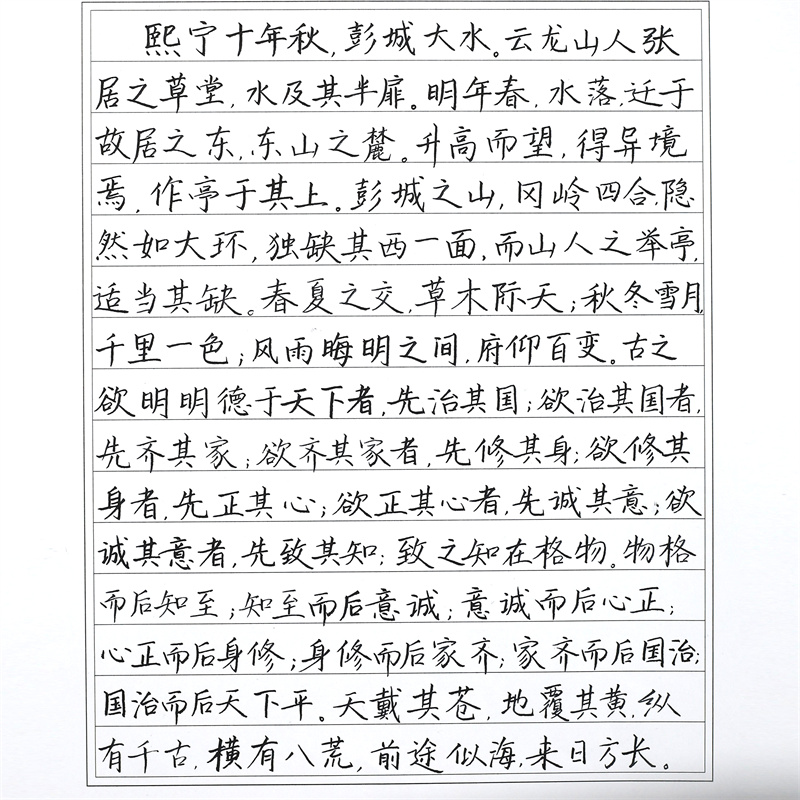 熙宁十年秋,彭城大水。云龙山人张
居之草堂,水及其半扉。明年春,水落,迁于
故居之东,东山之麓。升高而望,得异境
焉,作亭于其上。彭城之山,冈岭四合,隐
然如大环,独缺其西一面,而山人之举亭,
适当其缺。春夏之交,草木际天;秋冬雪月,
千里一色;风雨晦明之间,府仰百变。古之
欲明明德于天下者,先治其国;欲治其国者,
先齐其家;欲齐其家者,先修其身;欲修其
身者,先正其心;欲正其心者,先诚其意;欲
诚其意者,先致其知;致之知在格物。物格
而后知至;知至而后意诚;意诚而后心正;
心正而后身修;身修而后家齐;家齐而后国治;
国治而后天下平。天戴其苍,地覆其黄,纵
有千古,横有八荒,前途似海,来日方长。